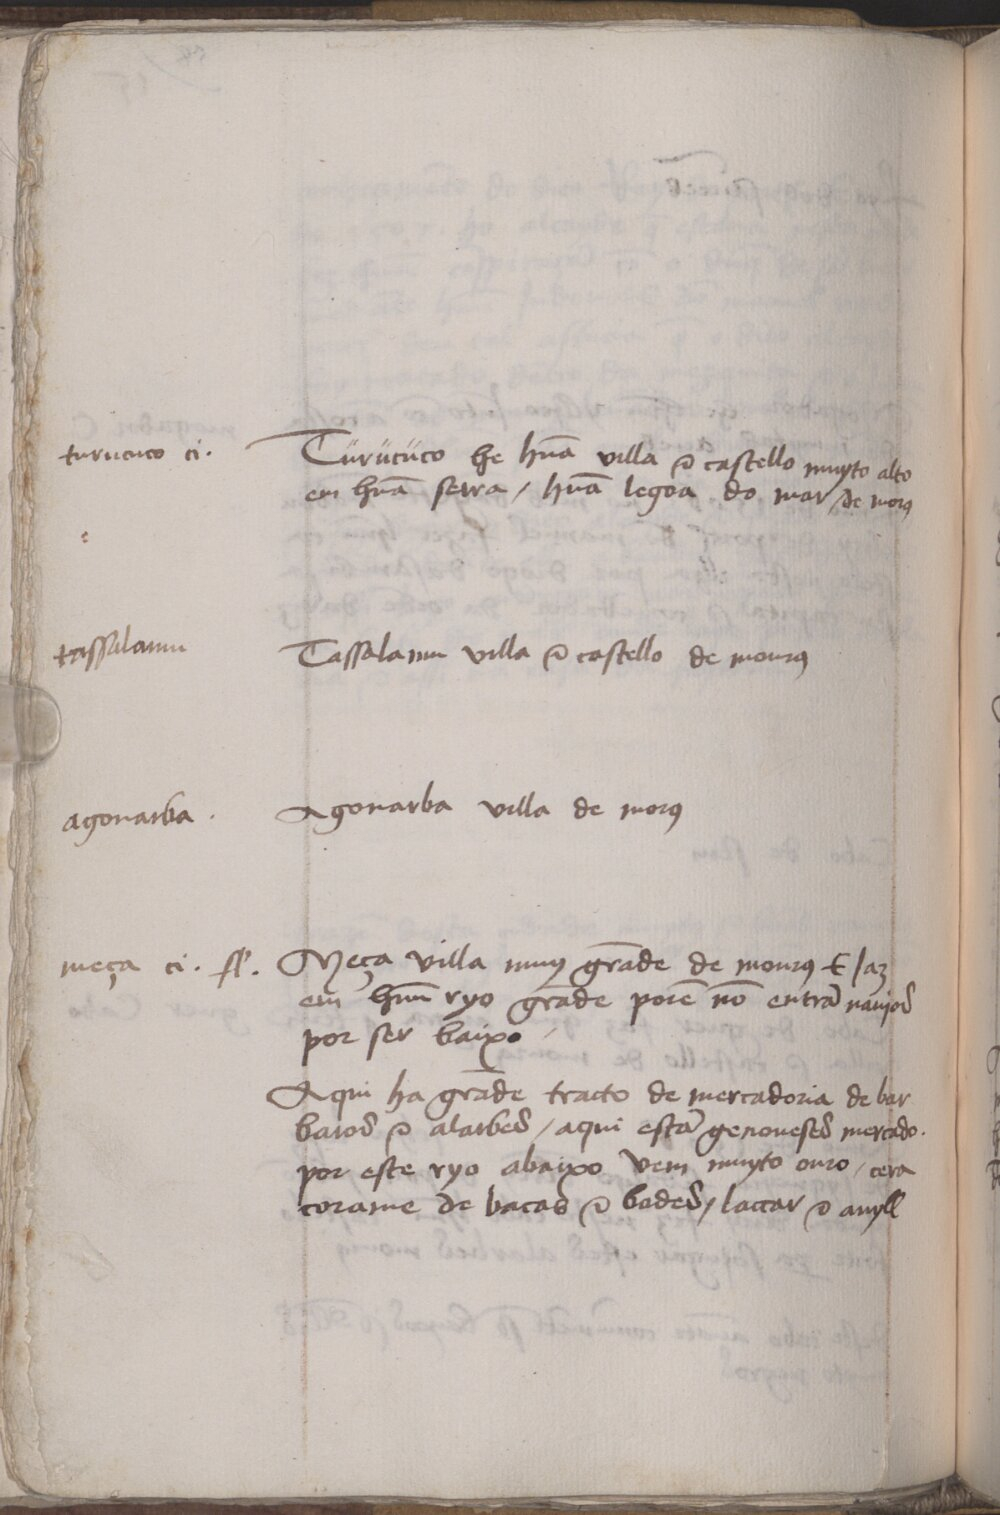 turucuco ci. Turucuco he hũa villa ⁊ castello muyto alto
em hũa serra / hũa legoa do mar / de moros
tassalamu Tassalamu villa ⁊ castello de mouros
agonarba . Agonarba villa de moros
meça ci. fl. Meça villa muy grãde de mouros & jaz
em hũu ryo grãde porẽ nõ entrã navios
por ser baixo
Aqui ha grãde tracto de mercadoria de bar
baros ⁊ alarbes / aqui estã genoueses mercado.
por este ryo abaixo vem muyto ouro / cera
corame de bacas ⁊ bodes / laccar ⁊ anyll